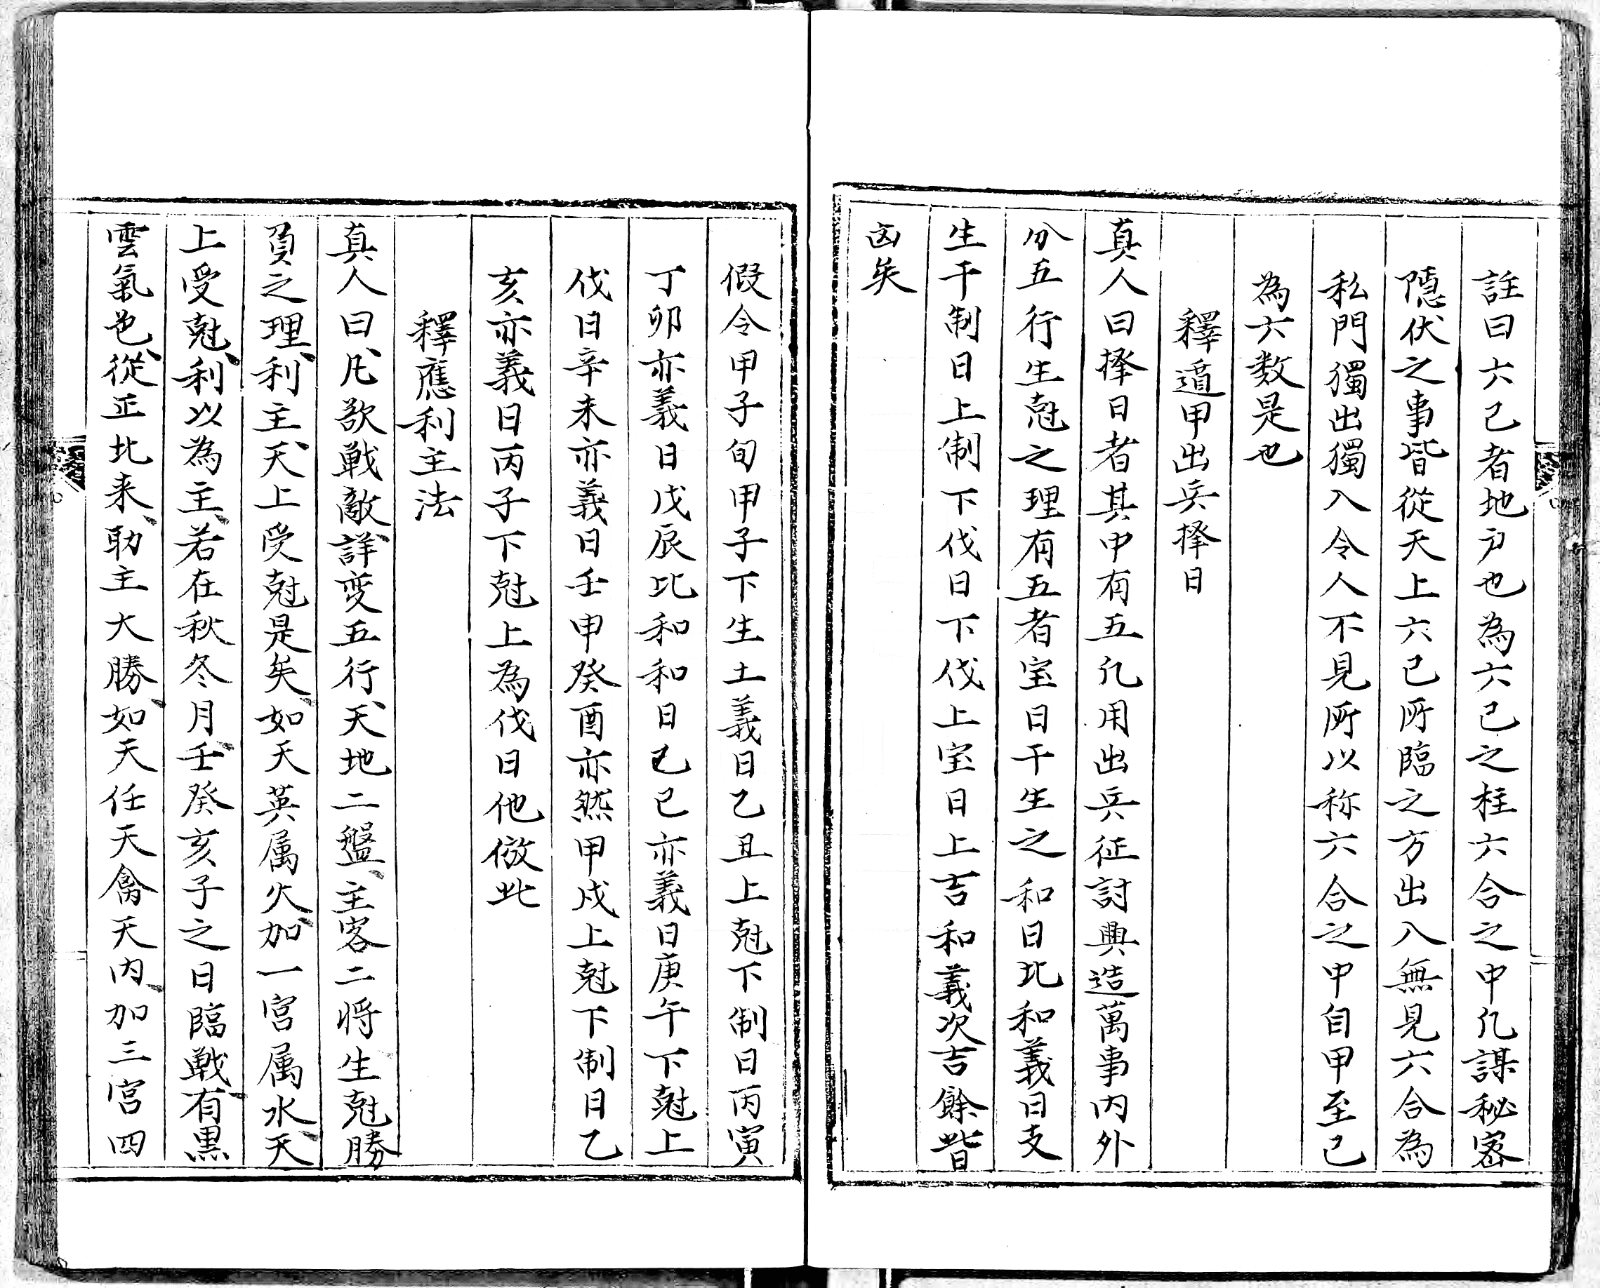 註曰六己者地户也為六己之柱六合之中凢謀秘宻
隱伏之事皆從天上六己所臨之方出入無見六合為
私門獨出獨入令人不見所以称六合之中自甲至己
為六数是也
釋遁甲出兵擇日
真人曰擇日者其中有五凢用出兵征討興造萬事内外
分五行生尅之理有五者宝日干生之和日比和義日支
生干制日上制下伐日下伐上宝日上吉和義次吉餘皆
凶矣
假令甲子旬甲子下生土義日乙丑上尅下制日丙寅
丁卯亦義日戊辰比和和日己巳亦義日庚午下尅上
伐日辛未亦義日壬申癸酉亦然甲戍上尅下制日乙
亥亦義日丙子下尅上為伐日他倣此
釋應利主法
真人曰凡欲戰敵詳变五行天地二盤主客二将生尅勝
負之理利主天上受尅是矣如天英属火加一宫属水天
上受尅利以為主若在秋冬月壬癸亥子之日臨戰有黒
雲氣色從正北来助主大勝如天任天禽天内加三宫四